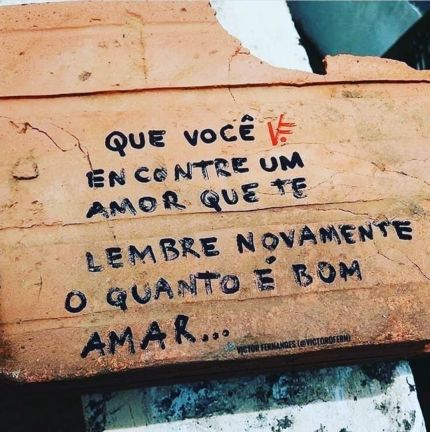 QUE VOCÊ
ENCONTRE UM
AMOR QUE TE
LEMBRE NOVAMENTE
O QUANTO É BOM
AMAR...
VICTOR FERNANDES (@VICTOROFERN)